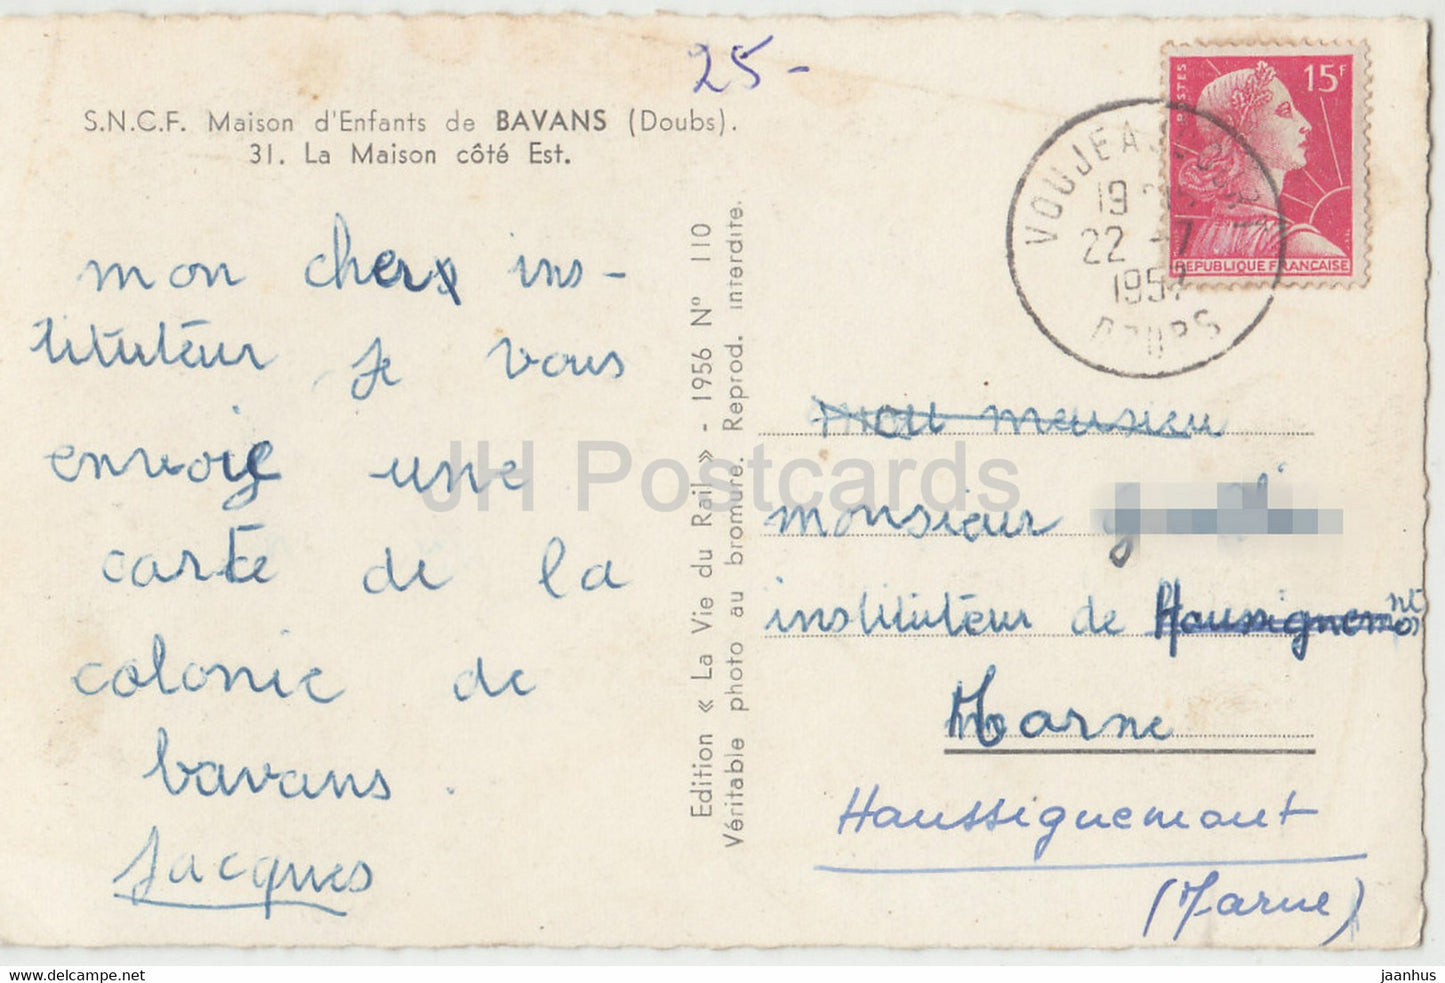 25-
S.N.C.F. Maison d'Enfants de BAVANS (Doubs).
31. La Maison côté Est.
mon cher ins-
tituteur je vous
envoie une
carte de la
colonie de
bavans.
Jacques
Edition « La Vie du Rail » - 1956 N° 110
Véritable photo au bromure. Reprod. interdite.
POSTES
15F
REPUBLIQUE FRANÇAISE
VOUJEAUCOURT
19
22 -7
1957
DOUBS
mon monsieur
monsieur g
instituteur de Haussignemont
Marne
Haussignemont
(Marne)
JH Postcards
www.delcampe.net
jaanhus